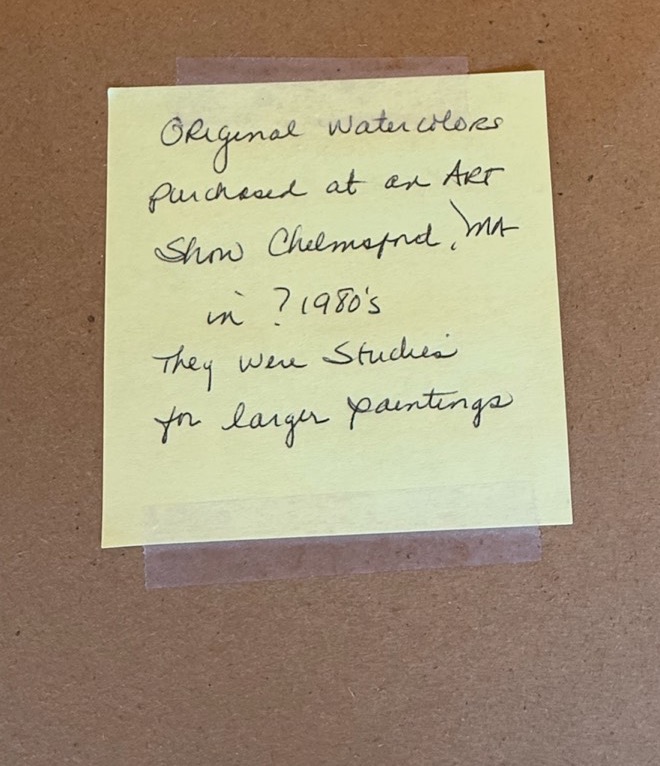 Original Watercolors
purchased at an ART
Show Chelmsford, MA
in ? 1980's
They were Studies
for larger paintings